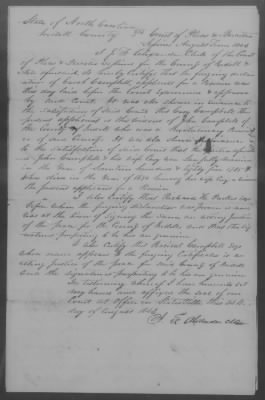 State of North Carolina
Iredell County Court of Pleas & Quarter
Sessions August Term
I J. F. Alexander Clerk of the Court
of Pleas & Quarter Sessions for the County of Iredell &
State aforesaid, do hereby Certify that the forgoing declar
ation of Caty Campbell applicant for a Pension was
this day laid before the Court examined & approved
by said Court. It was also shown in evidence to
the satisfaction of said Court that Caty Campbell the
present applicant is the widow of John Campbell of
the County of Iredell who was a Revolutionary
It was also shown
to the satisfaction of said Court that the
John Campbell & his wife Caty were lawfully married
in the year of Seventeen hundred & Eighty five 1785 &
who died in the year of leaving his wife Caty
the present applicant for a Pension
I also Certify that Richard
before whom the forgoing declaration was
was at the time of signing the same an acting Justice
of the peace for the County of Iredell and that the sig
nature purporting to be his are genuine
I also Certify that Campbell Esqr
whose name appears to the forgoing Certificate is an
acting Justice of the peace for said County of Iredell
and the signature purporting to be his are genuine
In testimony whereof I have hereunto set
my hand and affixed the seal of our
Court at Office in Statesville this
day of August
J. F. Alexander Clk